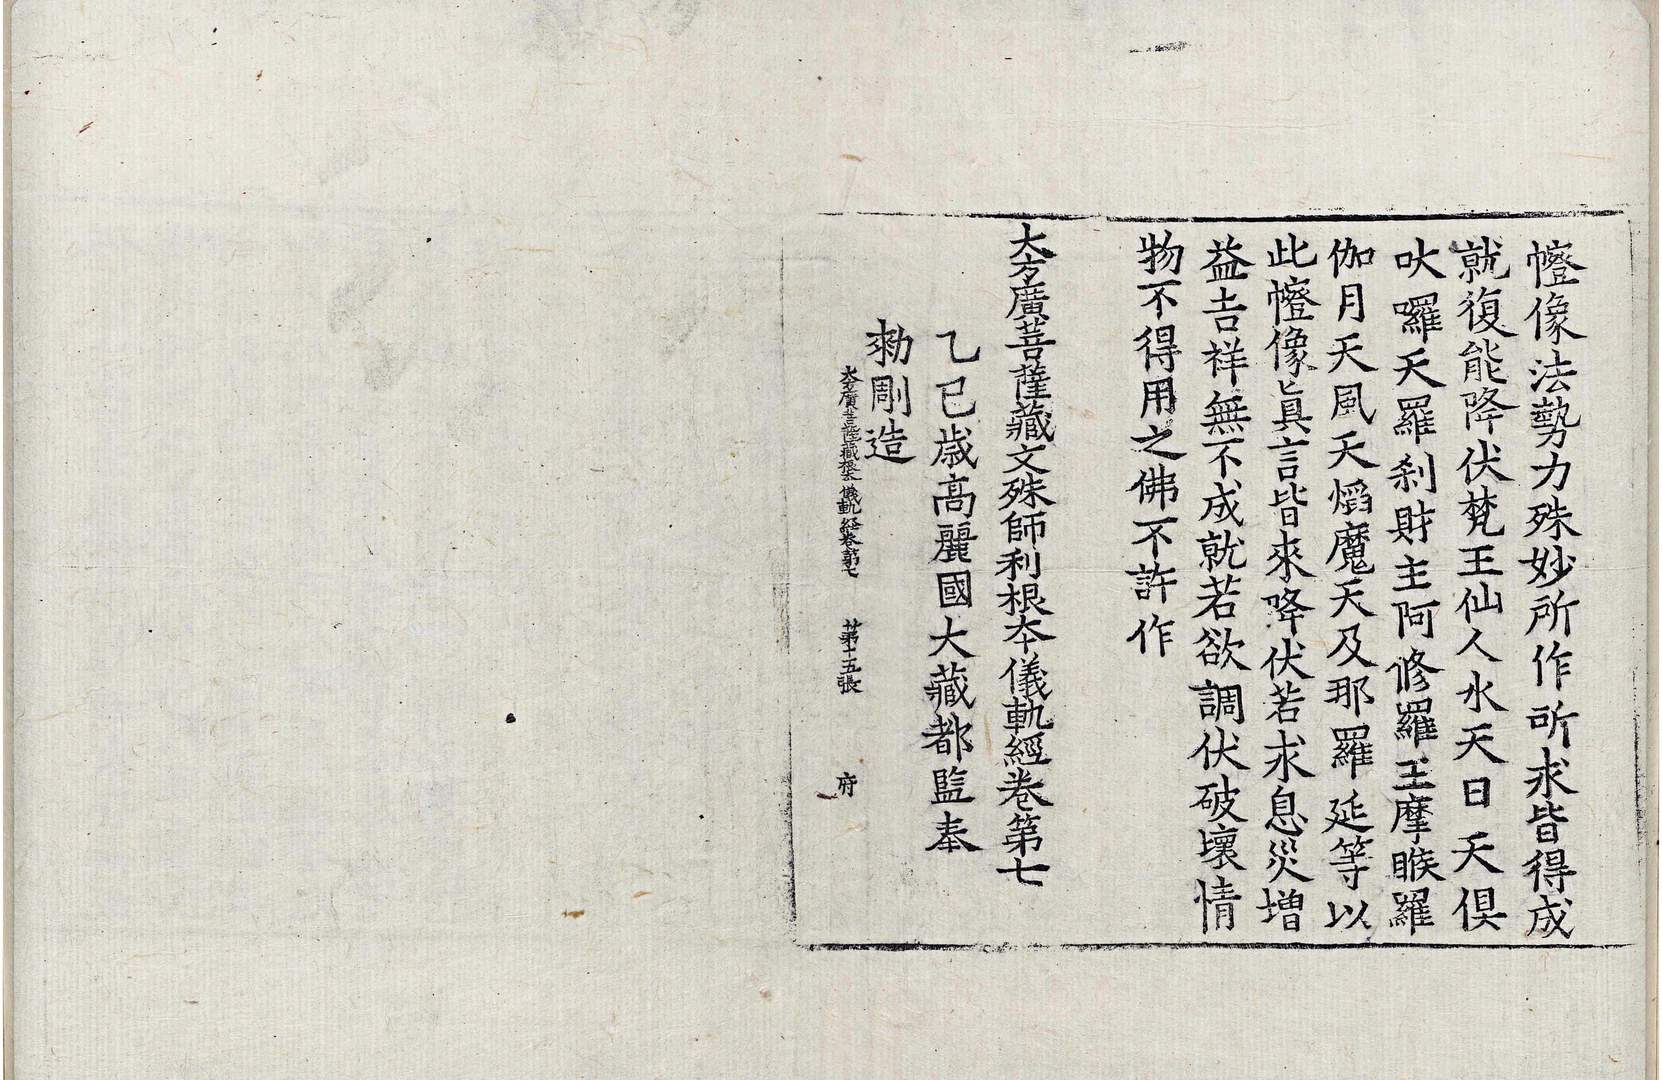 幰像法勢力殊妙所作所求皆得成
就復能降伏梵王仙人水天日天俱
吠囉天羅刹財主阿修羅王摩睺羅
伽月天風天焰魔天及那羅延等以
此幰像眞言皆來降伏若求息災增
益吉祥無不成就若欲調伏破壞情
物不得用之佛不許作
大方廣菩薩藏文殊師利根本儀軌經卷第七
乙巳歲高麗國大藏都監奉
勑彫造
大方廣菩薩藏根本儀軌經卷第七 第十五張 府